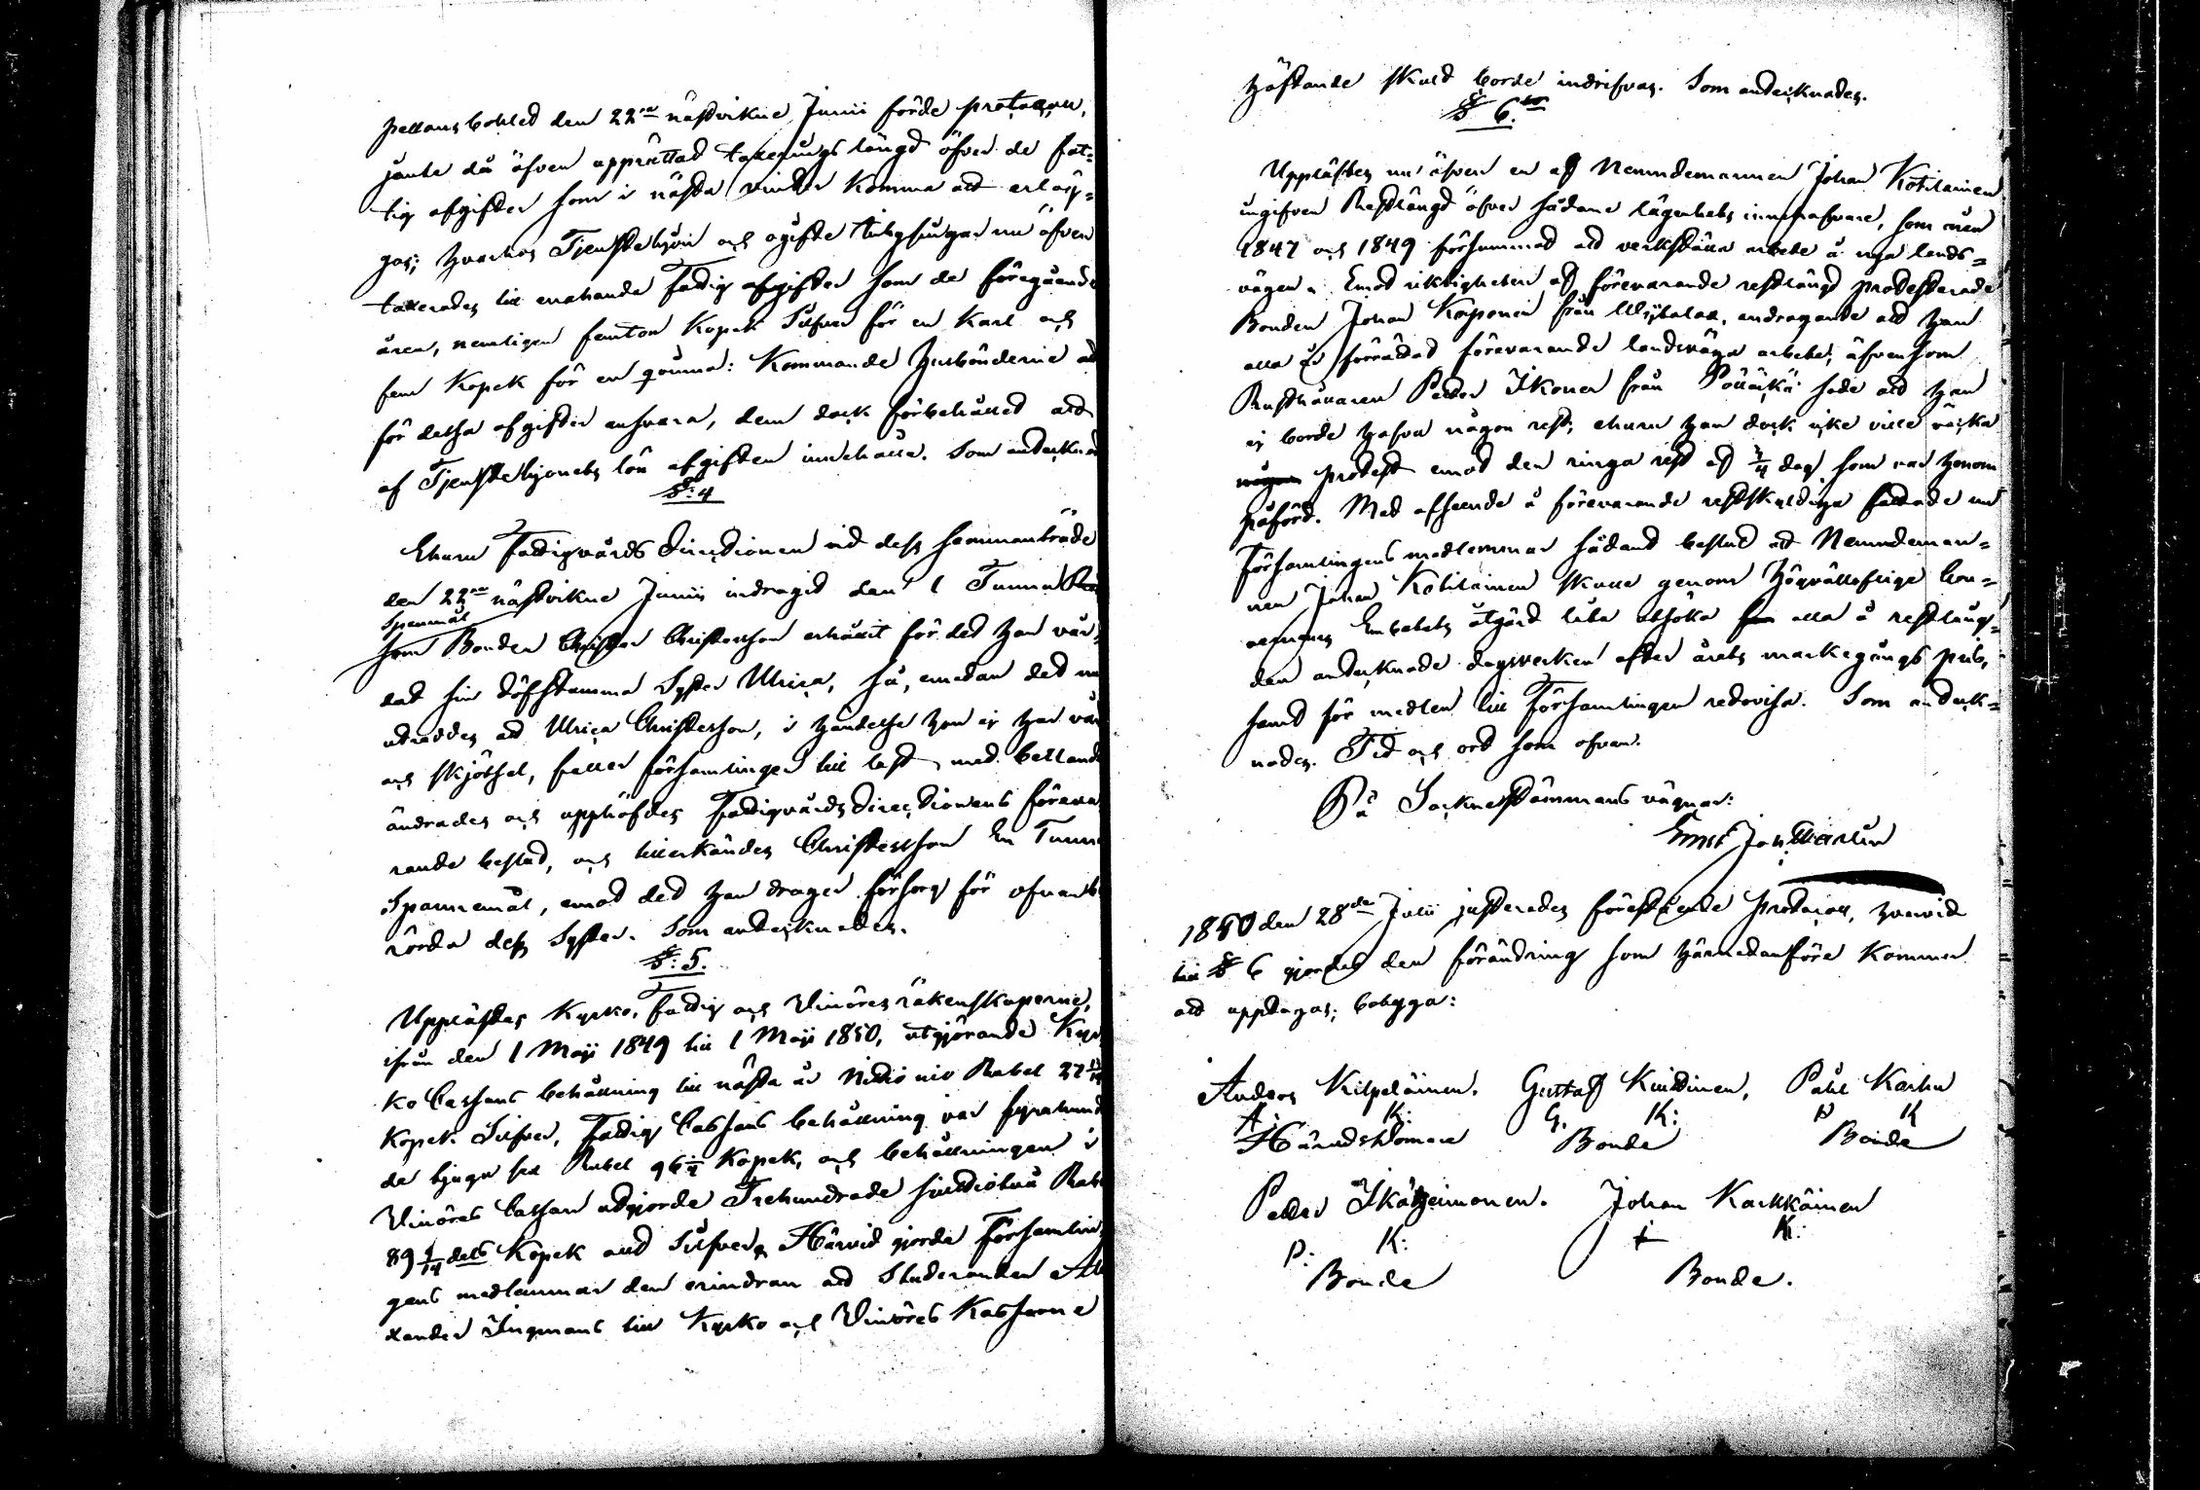 pellans bohled den 22ne nästvikne Junii förde protocoll,
jemte då äfven upprättad taxerings längd öfver de fat-
tig afgifter som i nästa vinter komma att erläg-
gas; hvarhos Tjenstehjon och ogifte Ynglingar nu äfven
taxerades till enahanda Fattig afgifter som de föregående
åren, nemligen femton Kopek Silfver för en Karl och
fem Kopek för en qvinna: Kommande Husbönderne att
för dessa afgifter ansvara, dem dock förbehållet att
af Tjenstehjonets lön afgiften innehålla. Som antecknad
§: 4
Ehuru Fattigvårds Directionen vid dess sammanträde
den 22ne nästvikne Junii indragit den 1 Tunna
Spanmål
som Bonden Christer Christersson erhållit för det han vår-
dat sin döfstumma Syster Ulrica, så, emedan det nu
utreddes att Ulrica Christersson, i händelse hon ej har vård
och skjötsel, faller församlingen till last med bettlande
ändrades och upphöfdes Fattigvårds Directionens föreva-
rande beslut, och tillerkändes Christersson En Tunna
Spannemål, emot det han drager försorg för ofvanbe
rörda dess Syster. Som antecknades.
§: 5.
Upplästes Kyrko, Fattig och Vinöres räkenskaperne,
ifrån den 1 Maji 1849 till 1 Maji 1850, utgjörande Kyr-
ko Cassans behållning till nästa år Nittio nio Rubel 27
Kopek Silfver, Fattig Cassans behållning var fyrahund
de tjugu sex Rubel 96 Kopek, och behållningen i
Vinöres Cassan utgjorde Trehundrade sjuttiotvå Rubel
89 1/14 dels Kopek allt Silfver. Härvid gjorde Församlin-
gens medlemmar den erindran att Studeranden Ale
xander Ingmans till Kyrko och Vinöres Kassorne
häftande skuld borde indrifvas. Som antecknades.
§ 6.to
Upplästes nu äfven en af Nemndemannen Johan Kotilainen
ingifven Restlängd öfver sådane lägenhets innehafvare, som åren
1847 och 1849 försummat att verkställa arbete å nya lands-
vägen. Emot riktigheten af förevarande restlängd protesterade
Bonden Johan Korponen från, andragande att han
alla år förrättat förevarande landsvägs arbete, äfvensom
Rusthållaren Petter Ikonen från Pölläkkä sade att han
ej borde hafva någon rest, ehuru han dock icke ville väcka
någon protest emot den ringa rest af 3/4 dag som var honom
påförd. Med afseende å förevarande restskyldige fattade nu
Församlingens medlemmar sådant beslut att Nemndeman-
nen Johan Kotilainen skulle genom Högvällofliga Cro-
Embetets åtgärd låta utsöka alla å restläng-
den antecknade dagsverken efter årets markegångs pris,
samt för medlen till Församlingen redovisa. Som anteck-
nades. Tid och ort som ofvan.
På Socknestämmans vägnar:
Ernst Joh:
1850 den 28de Julii justerades förestående Protocoll, hvarvid
till § 6 gjordes den förändring som härnedanföre kommer
att upptagas; betyga:
Anders Kilpeläinen. Gustaf Kuittinen, Påhl Karhu
A: K: G. K: P K
Häradsdomare Bonde Bonde
Petter Ikäheimonen. Johan Karkkäinen
P: K: + K:
Bonde Bonde.